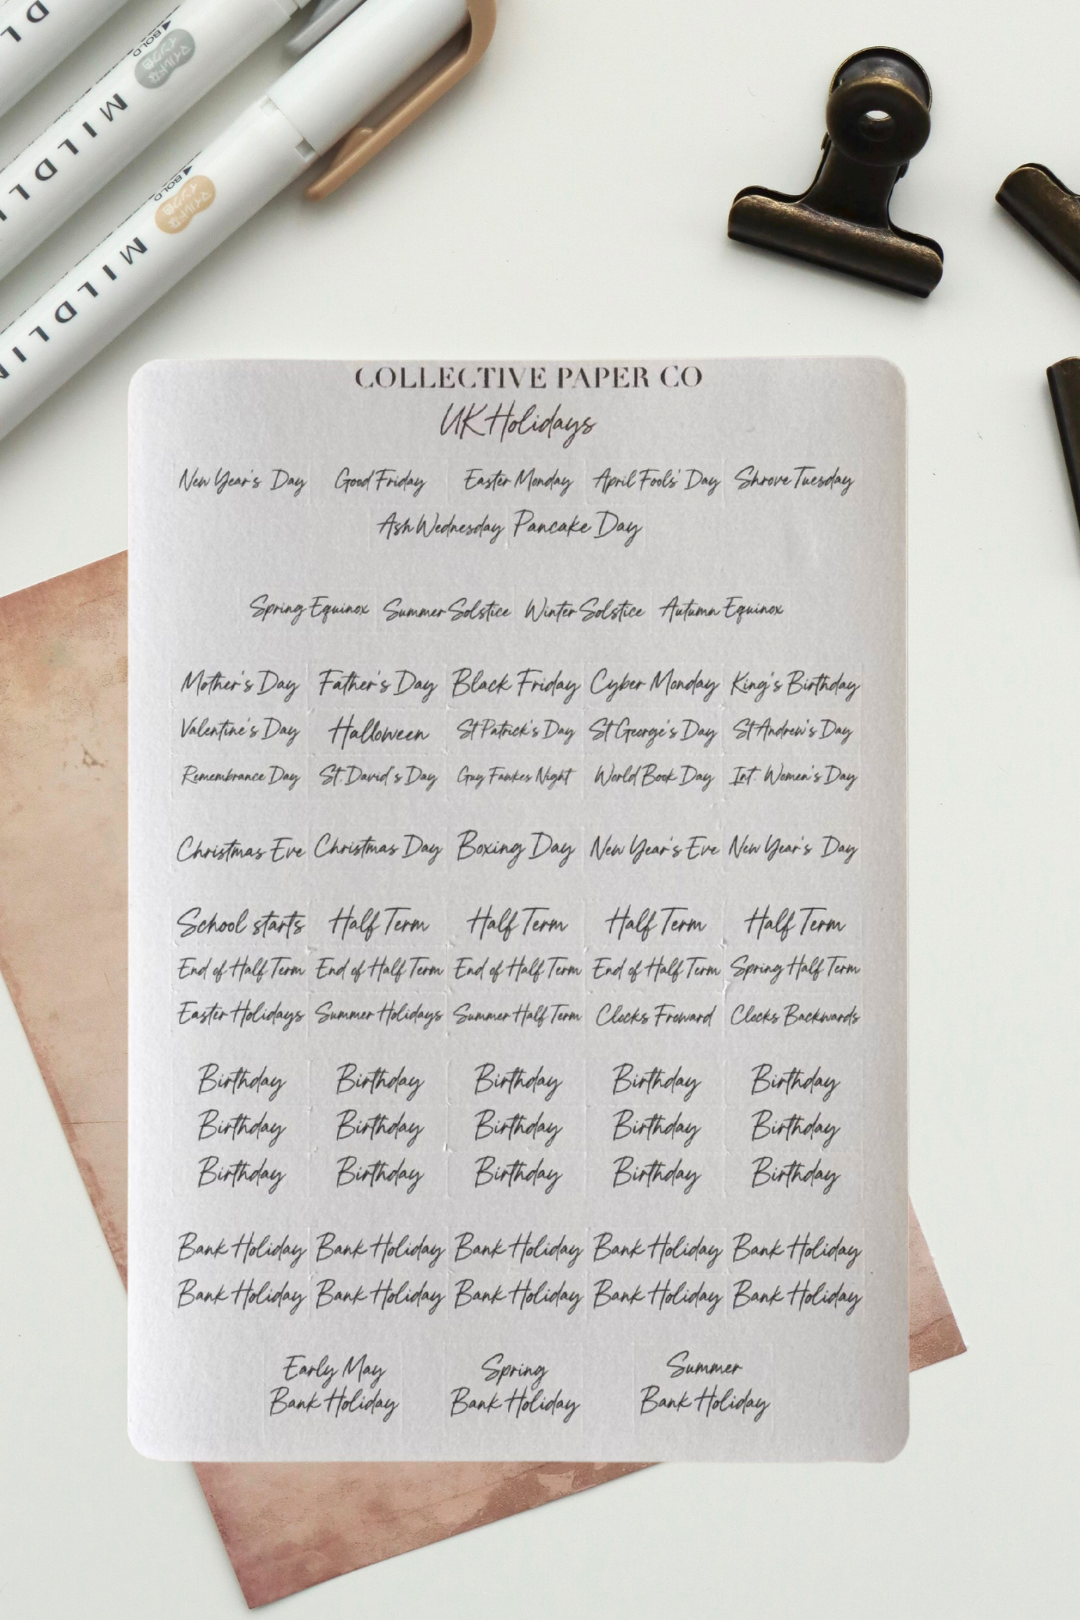 BOLD
マイルドな
インク色
MILDLI
BOLD
マイルドな
インク色
MILDLIN
COLLECTIVE PAPER CO
UK Holidays
New Year's Day Good Friday Easter Monday April Fools' Day Shrove Tuesday
Ash Wednesday Pancake Day
Spring Equinox Summer Solstice Winter Solstice Autumn Equinox
Mother's Day Father's Day Black Friday Cyber Monday King's Birthday
Valentine's Day Halloween St Patrick's Day St George's Day St Andrew's Day
Remembrance Day St David's Day Guy Fawkes Night World Book Day Int. Women's Day
Christmas Eve Christmas Day Boxing Day New Year's Eve New Year's Day
School starts Half Term Half Term Half Term Half Term
End of Half Term End of Half Term End of Half Term End of Half Term Spring Half Term
Easter Holidays Summer Holidays Summer Half Term Clocks Froward Clocks Backwards
Birthday Birthday Birthday Birthday Birthday
Birthday Birthday Birthday Birthday Birthday
Birthday Birthday Birthday Birthday Birthday
Bank Holiday Bank Holiday Bank Holiday Bank Holiday Bank Holiday
Bank Holiday Bank Holiday Bank Holiday Bank Holiday Bank Holiday
Early May Spring Summer
Bank Holiday Bank Holiday Bank Holiday